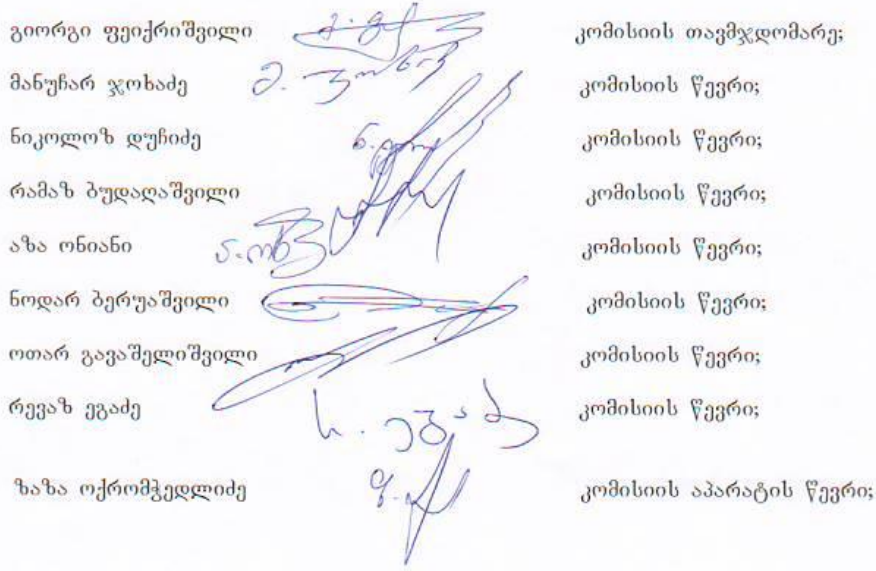 გიორგი ფეიქრიშვილი კომისიის თავმჯდომარე;
მანუჩარ ჯოხაძე კომისიის წევრი;
ნიკოლოზ დუჩიძე კომისიის წევრი;
რამაზ ბუდაღაშვილი კომისიის წევრი;
აზა ონიანი კომისიის წევრი;
ნოდარ ბერუაშვილი კომისიის წევრი;
ოთარ გავაშელიშვილი კომისიის წევრი;
რევაზ ეგაძე კომისიის წევრი;
ზაზა ოქრომჭედლიძე კომისიის აპარატის წევრი;